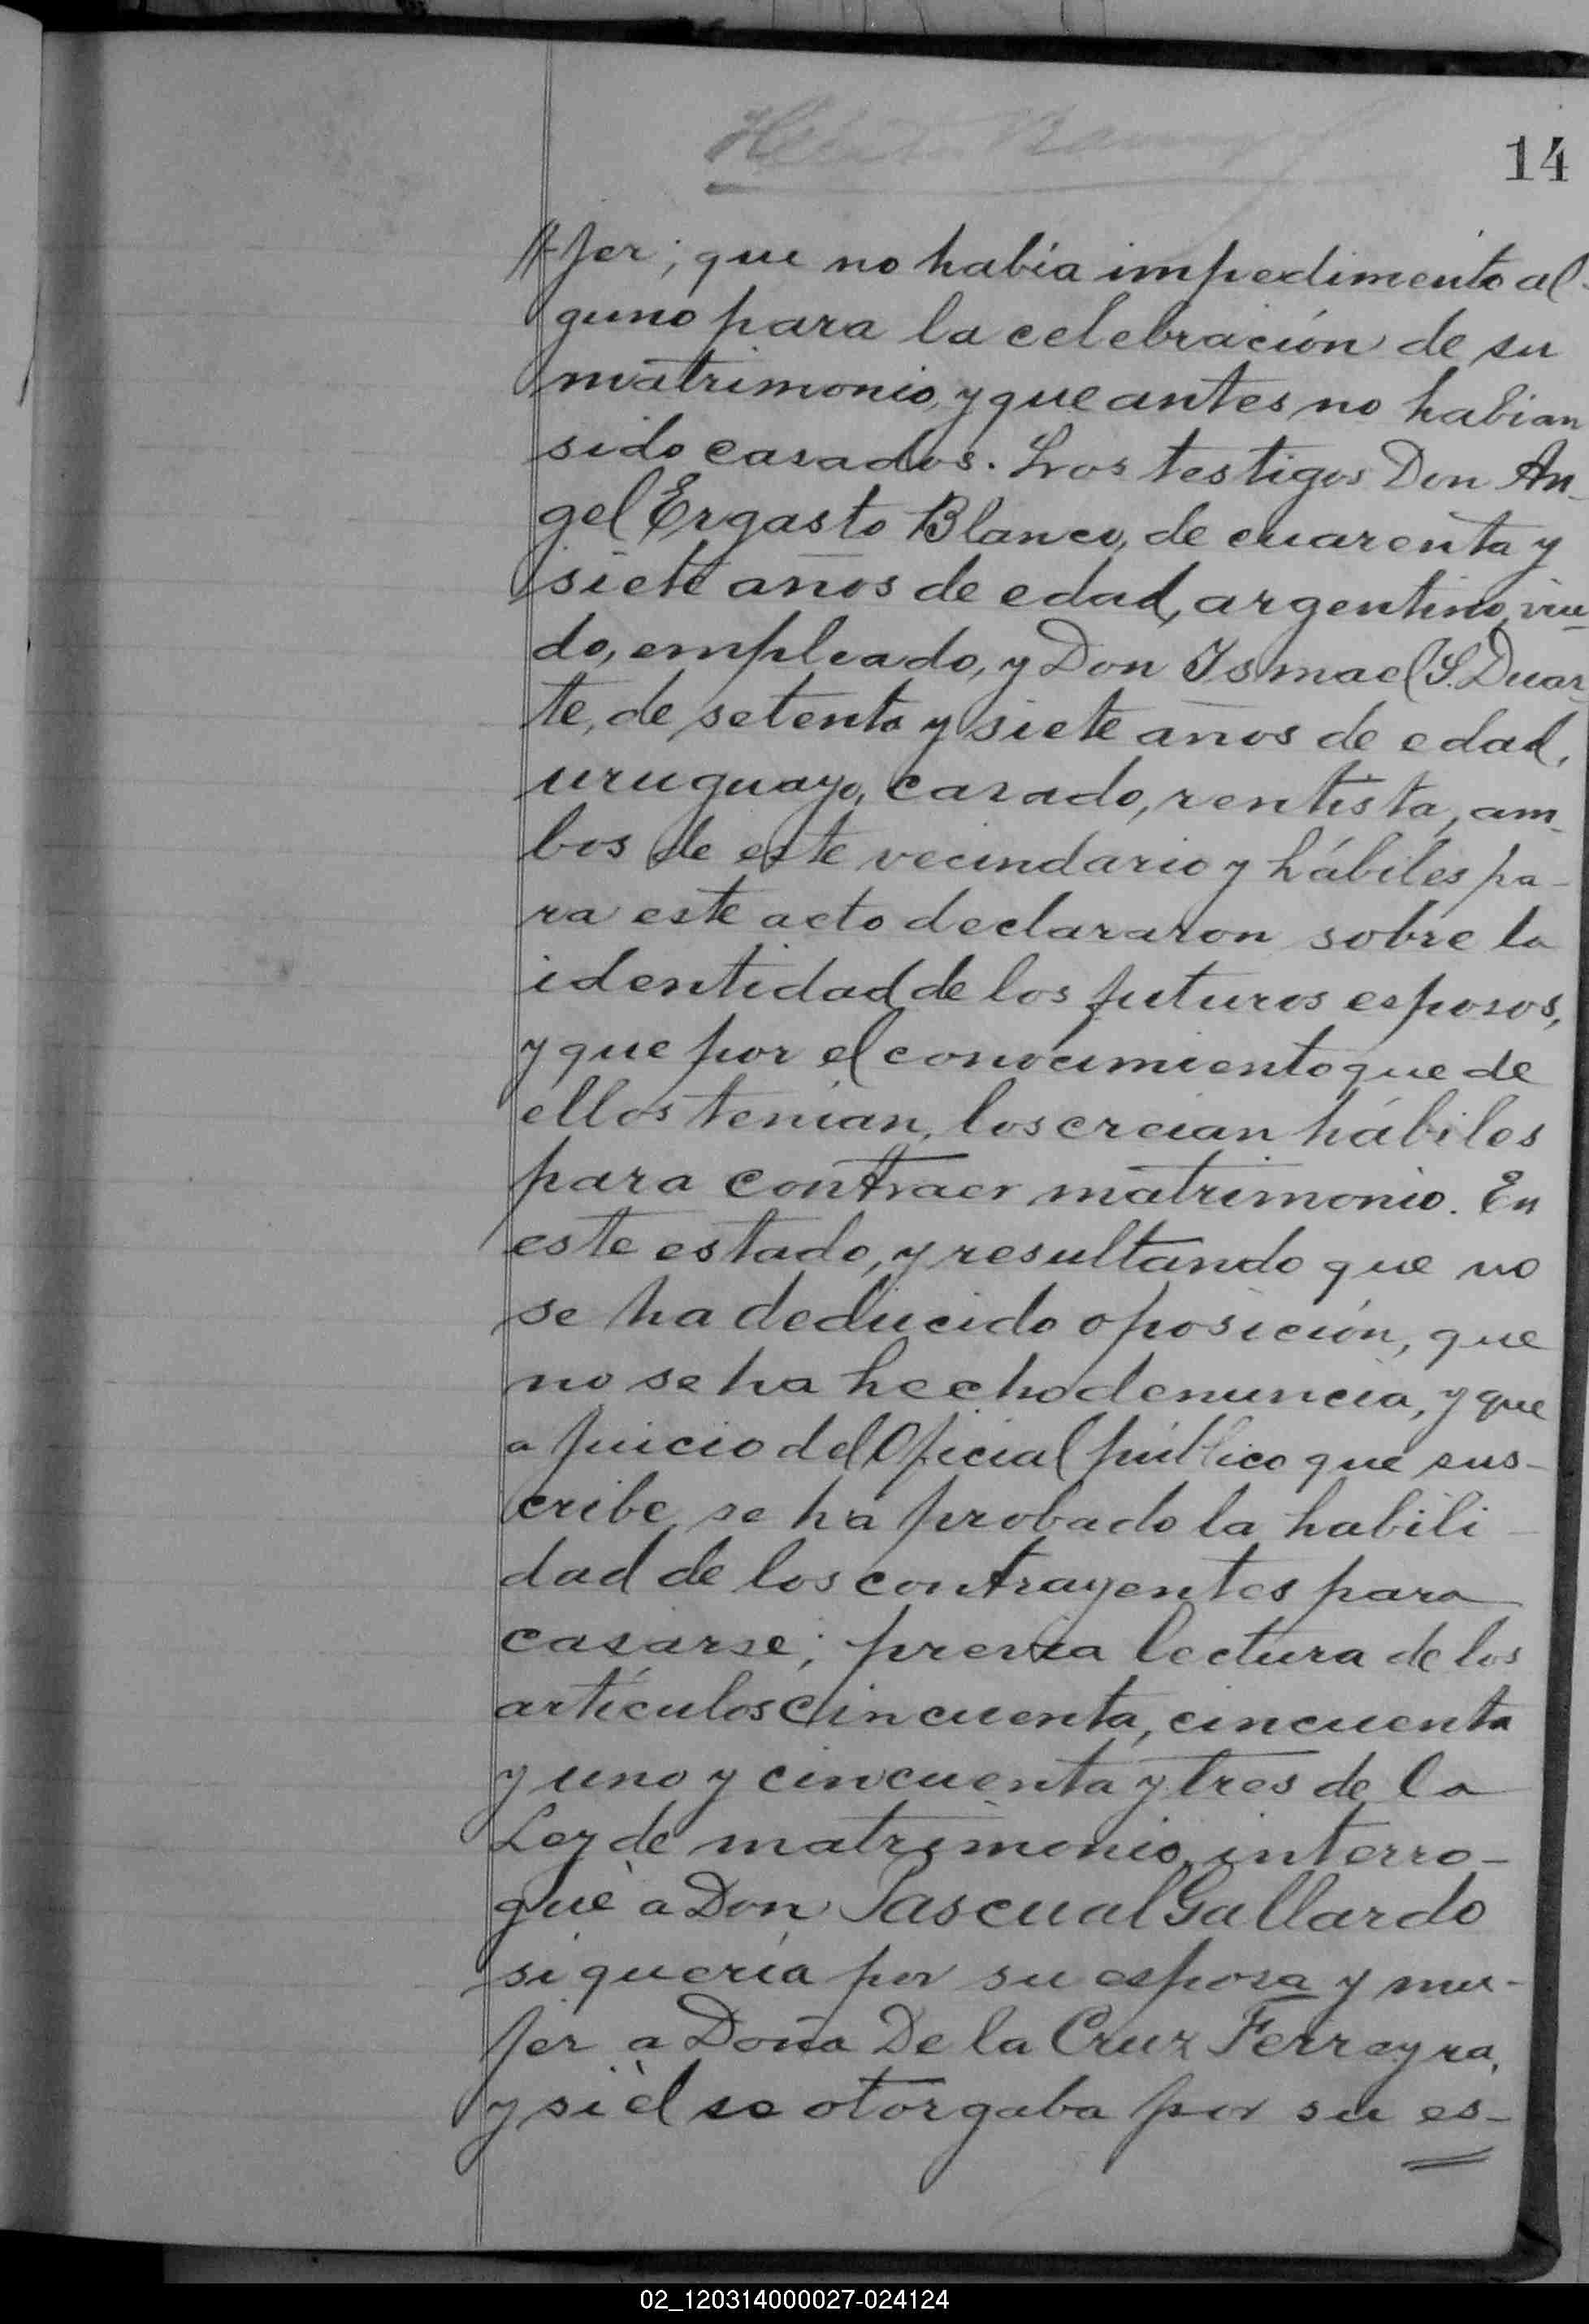 14
//jer; que no había impedimento al-
guno para la celebración de su
matrimonio, y que antes no habían
sido casados. Los testigos Don An-
gel Ergasto Blanco, de cuarenta y
siete años de edad, argentino, viu-
do, empleado, y Don Ismael S. Duar-
te, de setenta y siete años de edad,
uruguayo, casado, rentista, am-
bos de este vecindario y hábiles pa-
ra este acto declararon sobre la
identidad de los futuros esposos,
y que por el conocimiento que de
ellos tenían, los creían hábiles
para contraer matrimonio. En
este estado, y resultando que no
se ha deducido oposición, que
no se ha hecho denuncia, y que
a juicio del Oficial público que sus-
cribe se ha probado la habili-
dad de los contrayentes para
casarse; previa lectura de los
artículos cincuenta, cincuenta
y uno y cincuenta y tres de la
Ley de matrimonio, interro-
guè a Don Pascual Gallardo
si quería por su esposa y mu-
jer a Doña De la Cruz Ferreyra,
y si èl se otorgaba por su es-
02_120314000027-024124